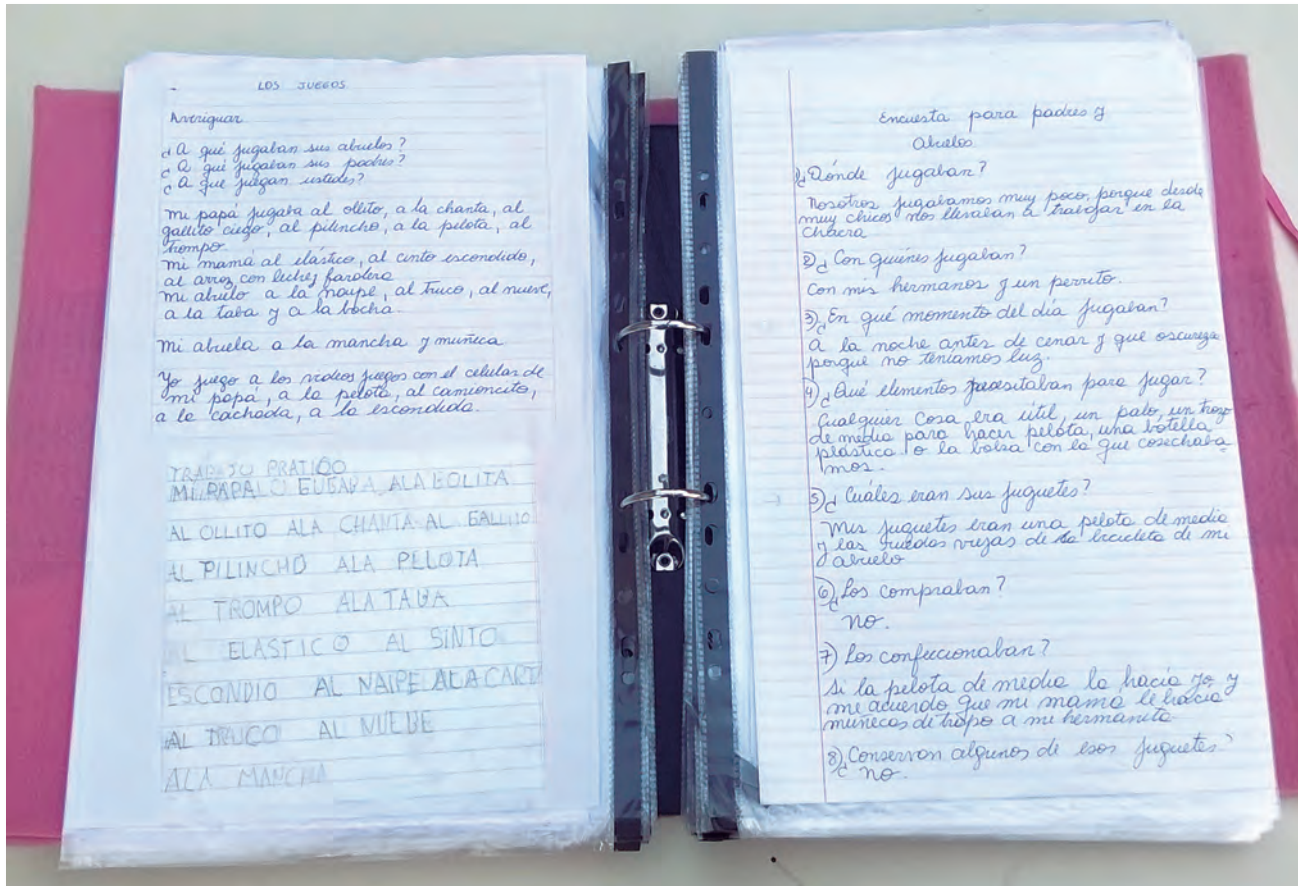 LOS JUEGOS
Averiguar
¿A qué jugaban sus abuelos?
¿A qué jugaban sus padres?
¿A que juegan ustedes?
Mi papá jugaba al ollito, a la chanta, al
gallito ciego, al pilincho, a la pelota, al
trompo.
Mi mamá al elástico, al cinto escondido,
al arroz con leche, farolera
Mi abuelo a la naipe, al truco, al nueve,
a la taba y a la bocha.
Mi abuela a la mancha y muñeca.
Yo juego a los videos juegos con el celular de
mi papá, a la pelota, al camioncito,
a la cachada, a la escondida.
TRABAJO PRATICO
MI PAPALO EUGABA ALA BOLITA
AL OLLITO ALA CHANTA AL GALLITO
AL PILINCHO ALA PELOTA
AL TROMPO ALA TABA
AL ELASTICO AL SINTO
ESCONDIO AL NAIPE ALA CARTA
AL TRUCO AL NUEBE
ALA MANCHA
Encuesta para padres y
Abuelos
1)¿Dónde jugaban?
Nosotros jugabamos muy poco, porque desde
muy chicos nos llevaban a trabajar en la
chacra
2)¿Con quiénes jugaban?
Con mis hermanos y un perrito.
3)¿En qué momento del día jugaban?
A la noche antes de cenar y que oscurezca
porque no teníamos luz.
4)¿Qué elementos necesitaban para jugar?
Cualquier cosa era útil, un palo, un trozo
de media para hacer pelota, una botella
plástica o la bolsa con la que cosechaba-
mos.
5)¿Cuáles eran sus juguetes?
Mis juguetes eran una pelota de media
y las ruedas viejas de la bicicleta de mi
abuelo
6)¿Los compraban?
No.
7) Los confeccionaban?
Si la pelota de media la hacía yo y
me acuerdo que mi mamá le hacía
muñecas de trapo a mi hermanita.
8)¿Conservan algunos de esos juguetes?
No.